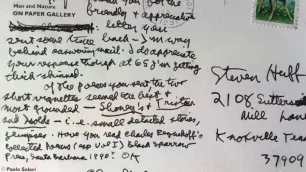 Man and Nature
ON PAPER GALLERY
you for the
friendly & appreciative
letter you
sent some time back – I'm way
behind answering mail. I do appreciate
your response though at 65 I'm getting
thick-skinned.
Of the poems you sent, the two
short vignettes seemed the best &
most grounded – Shoney's & Tristan
and Isolde – i.e. small detailed stories,
glimpses. Have you read Charles Reznikoff's
Collected Poems (esp vol I) Black Sparrow
Press, Santa Barbara 1990? OK
Steven Huff
2108
Mill Lane
Knoxville Tenn
37909
© Paolo Soleri